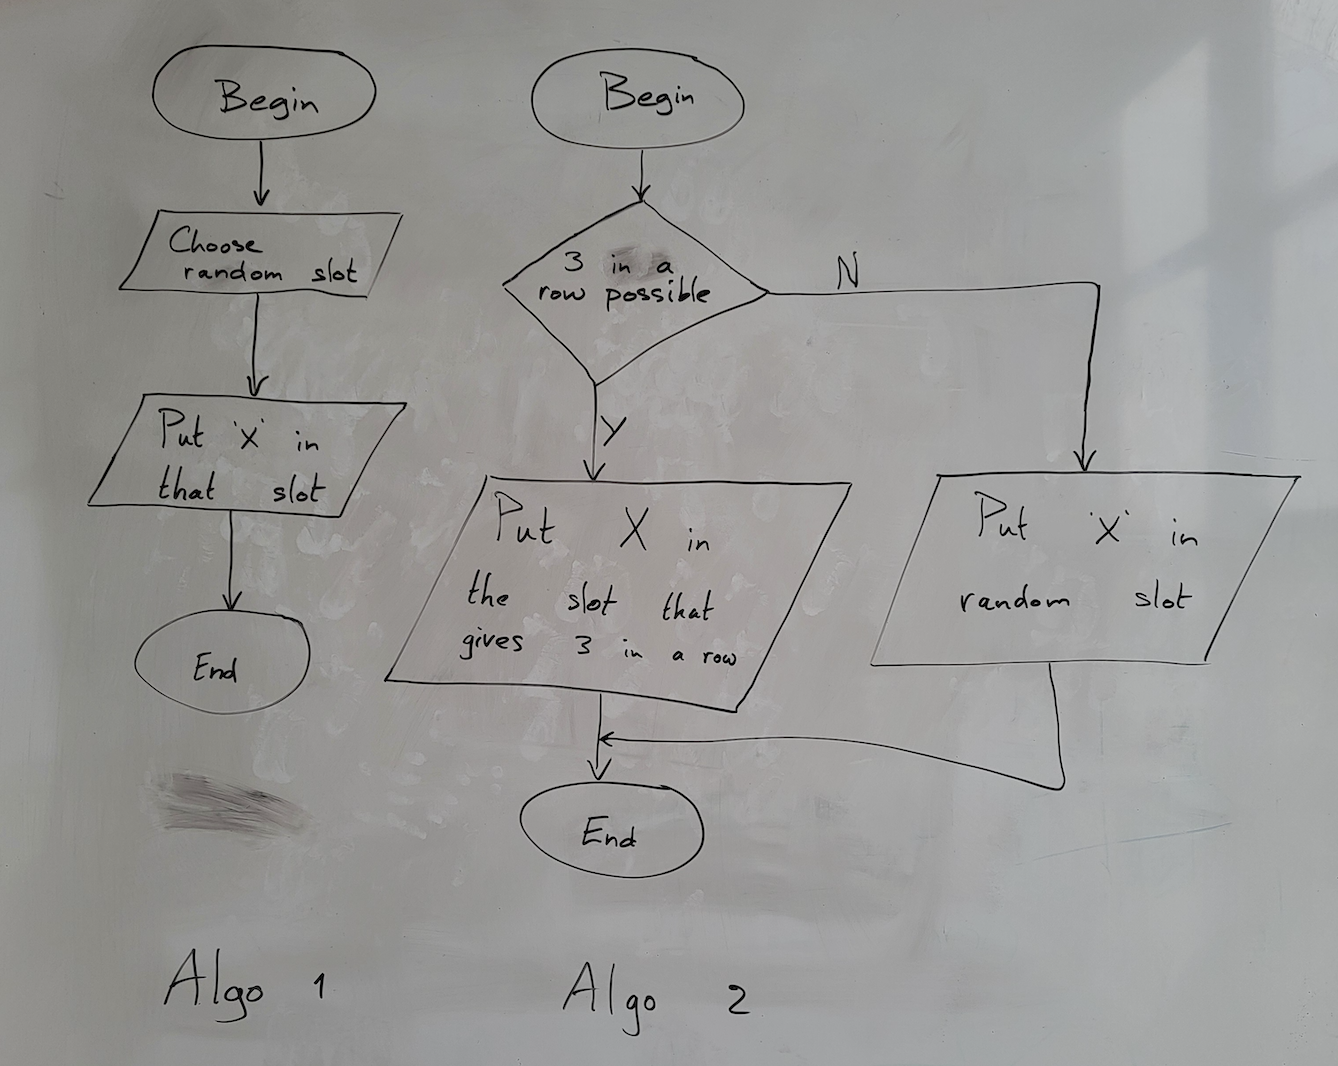 Begin
Choose
random slot
Put 'X' in
that slot
End
Algo 1
Begin
3 in a
row possible
N
Y
Put X in
the slot that
gives 3 in a row
Put 'X' in
random slot
End
Algo 2